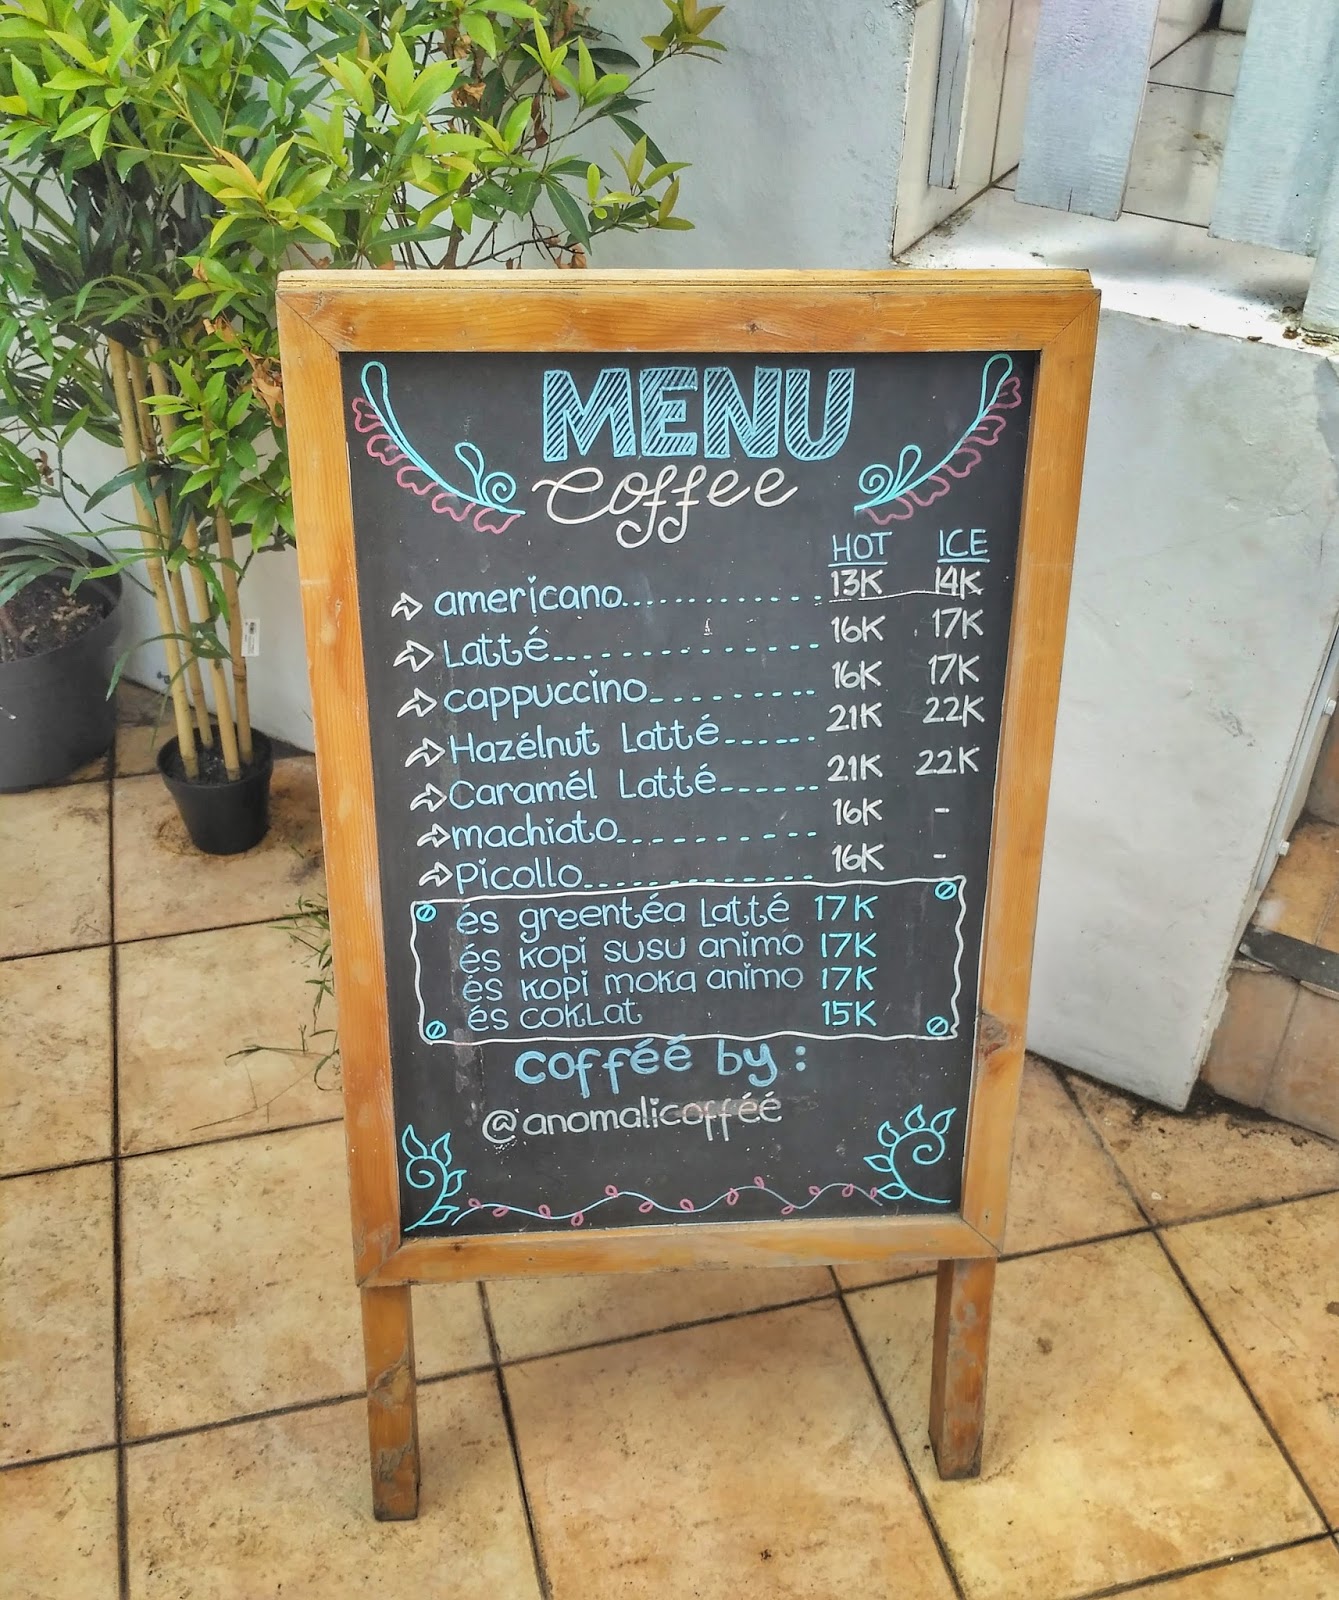 MENU
Coffee
HOT ICE
americano 13K 14K
Latté 16K 17K
cappuccino 16K 17K
Hazélnut Latté 21K 22K
Caramél Latté 21K 22K
machiato 16K -
Picollo 16K -
és greentéa Latté 17K
és kopi susu animo 17K
és kopi moka animo 17K
és coklat 15K
cofféé by :
@anomalicofféé